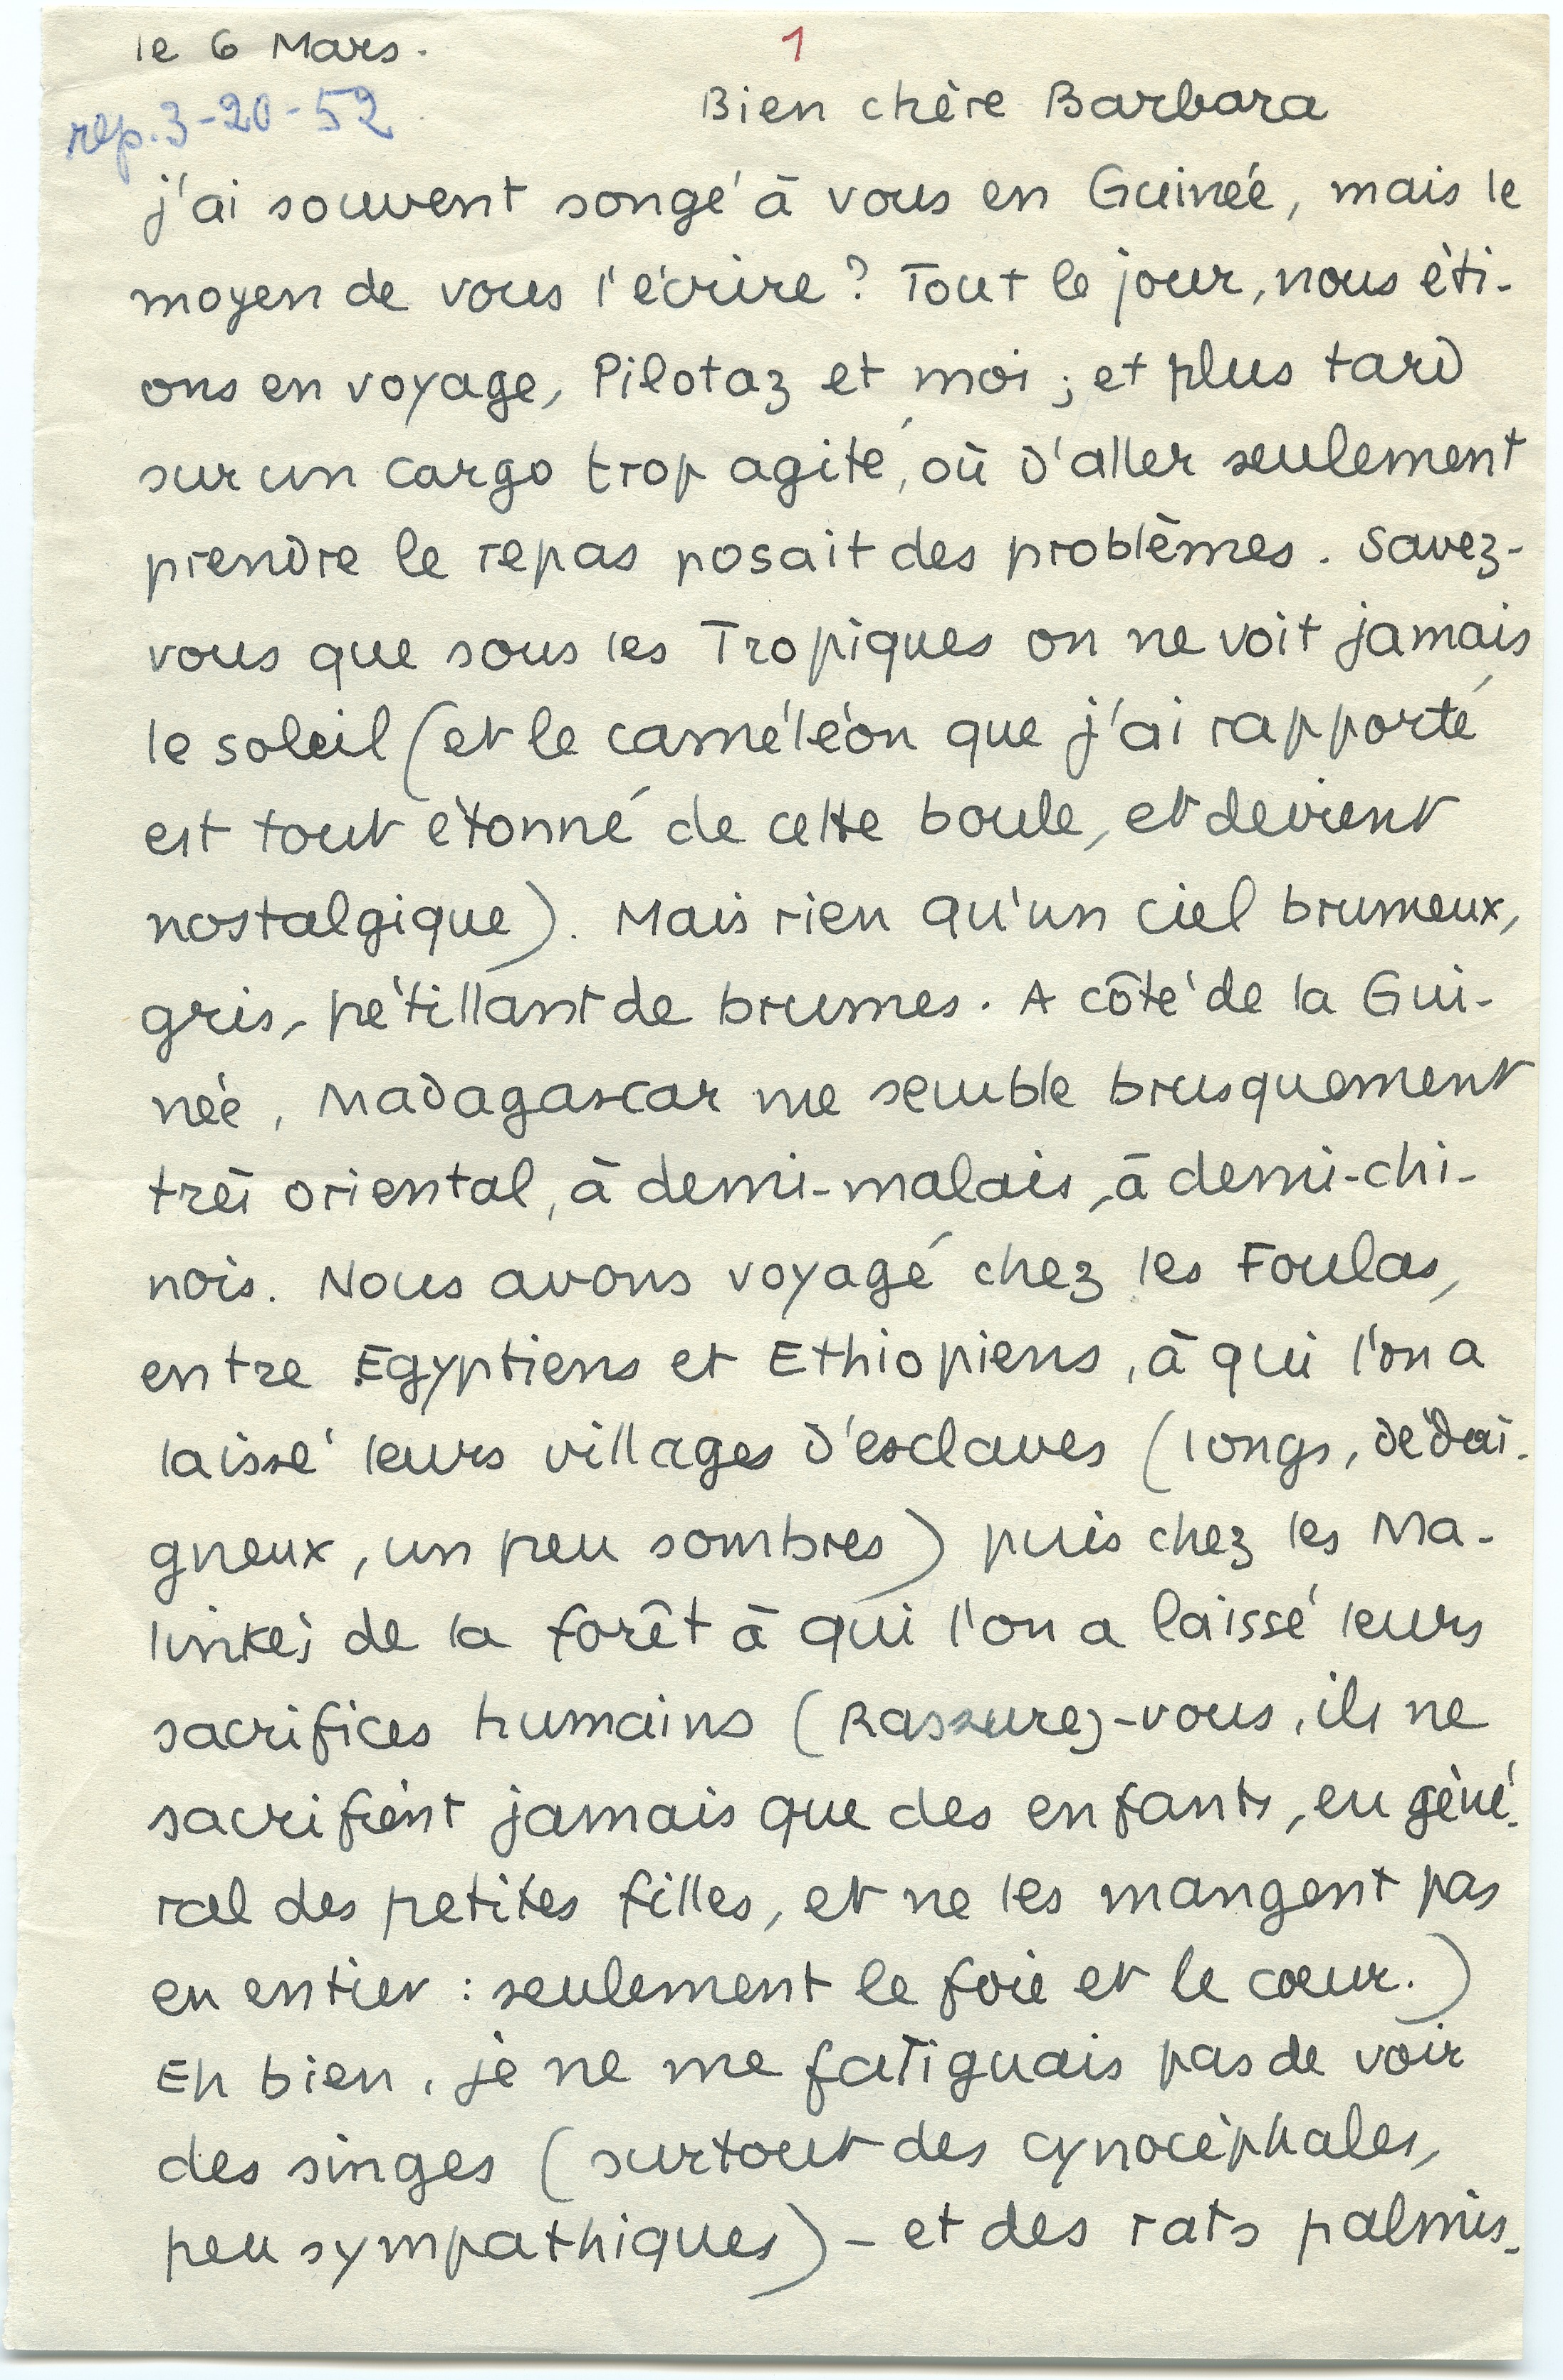 le 6 Mars.
1
rep. 3-20-52
Bien chère Barbara
j'ai souvent songé à vous en Guinée, mais le
moyen de vous l'écrire ? Tout le jour, nous éti-
ons en voyage, Pilotaz et moi ; et plus tard
sur un cargo trop agité, où d'aller seulement
prendre le repas posait des problèmes. Savez-
vous que sous les Tropiques on ne voit jamais
le soleil (et le caméléon que j'ai rapporté
est tout étonné de cette boule, et devient
nostalgique). Mais rien qu'un ciel brumeux,
gris, pétillant de brumes. A côté de la Gui-
née, Madagascar me semble brusquement
très oriental, à demi-malais, à demi-chi-
nois. Nous avons voyagé chez les Foulas,
entre Egyptiens et Ethiopiens, à qui l'on a
laissé leurs villages d'esclaves (longs, dédai-
gneux, un peu sombres) puis chez les Ma-
linkés de la forêt à qui l'on a laissé leurs
sacrifices humains (Rassurez-vous, ils ne
sacrifient jamais que des enfants, en géné-
ral des petites filles, et ne les mangent pas
en entier : seulement le foie et le cœur.)
Eh bien, je ne me fatiguais pas de voir
des singes (surtout des cynocéphales,
peu sympathiques) - et des rats palmis-